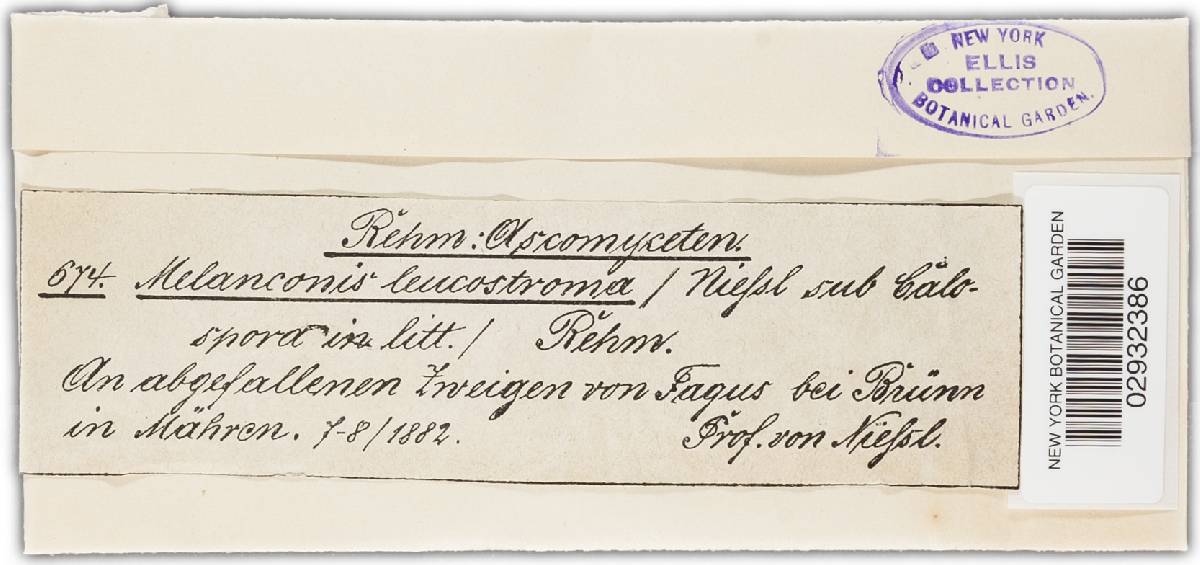 NEW YORK
ELLIS
COLLECTION
BOTANICAL GARDEN.
Rehm: Ascomyceten.
674. Melanconis leucostroma / Nießl sub Calo-
spora in litt. / Rehm.
An abgefallenen Zweigen von Fagus bei Brünn
in Mähren. 7-8/1882. Prof. von Nießl.
NEW YORK BOTANICAL GARDEN
02932386